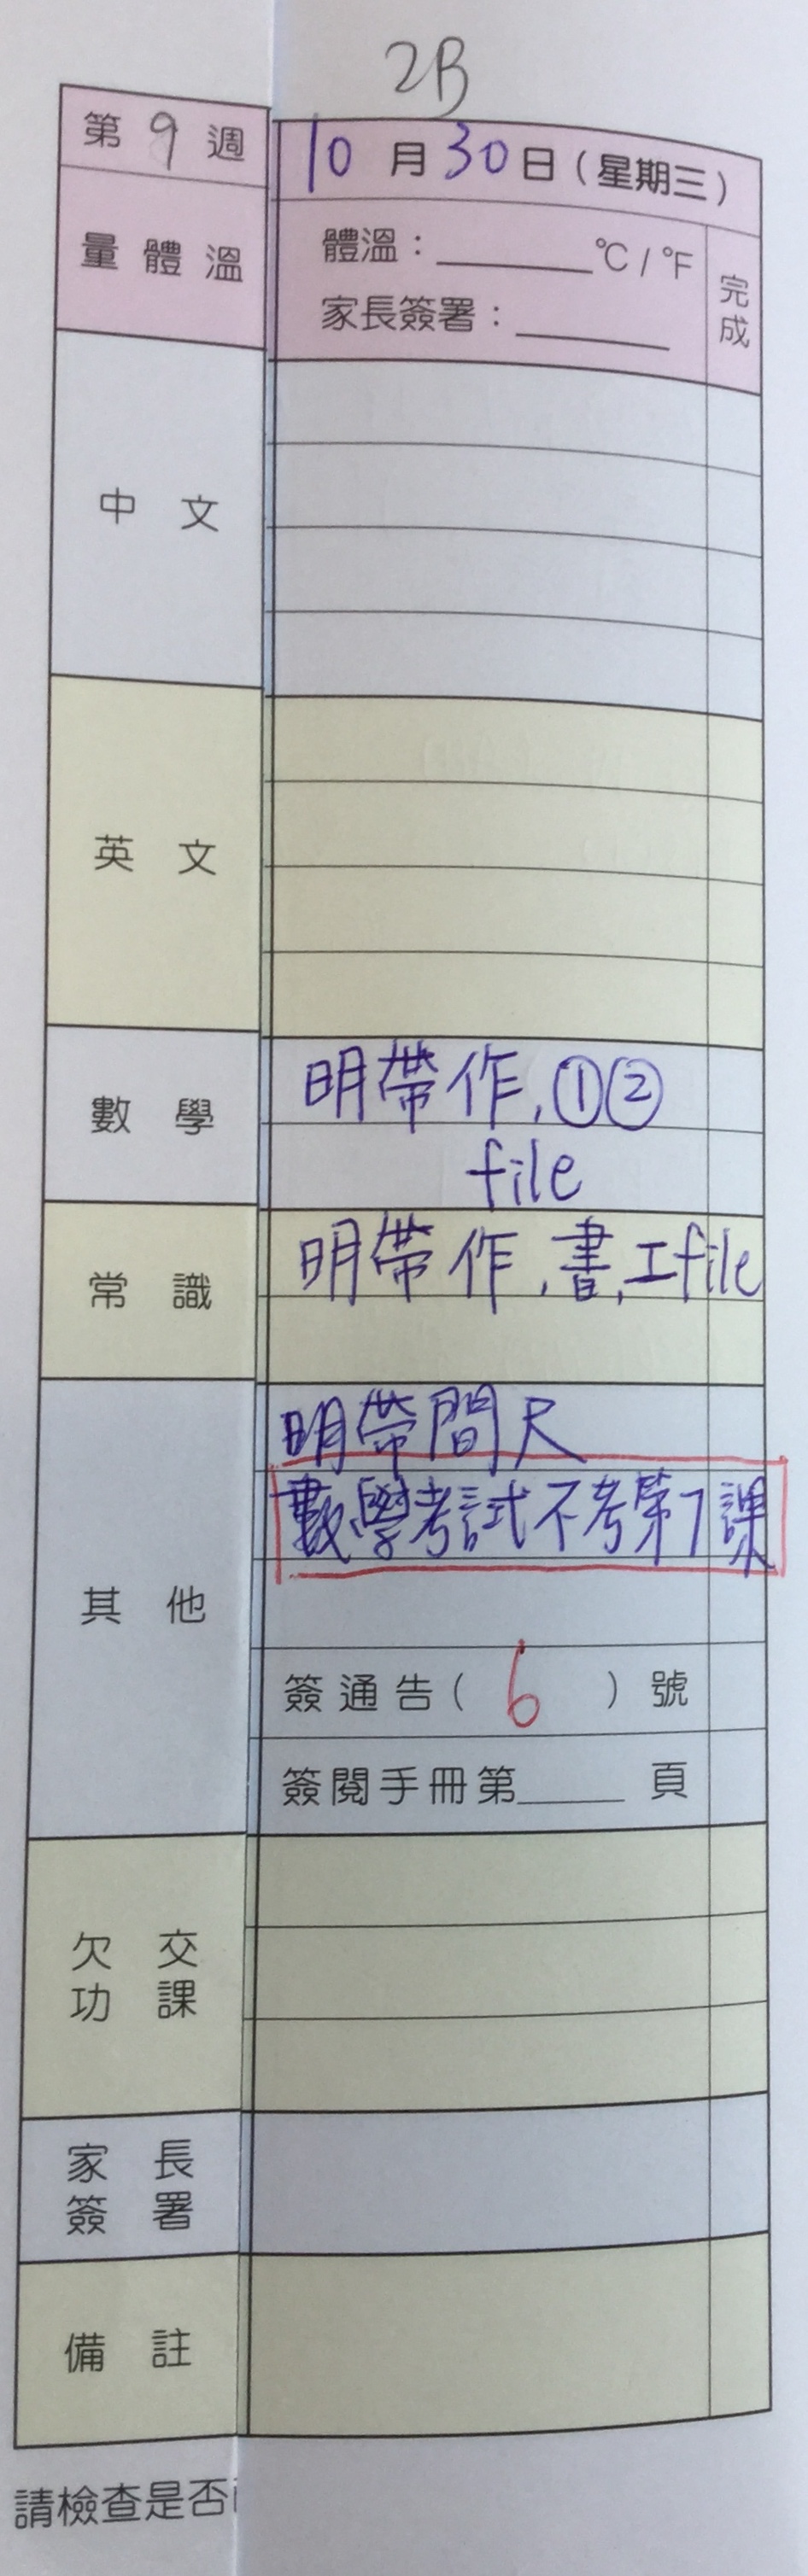 2B
第 9 週
10 月 30 日 ( 星期三 )
量 體 溫
體溫：______℃ / ℉
家長簽署：______
完成
中 文
英 文
數 學
明帶作, ①②
file
常 識
明帶作, 書, 工file
其 他
明帶間尺
數學考試不考第7課
簽通告 ( 6 ) 號
簽閱手冊第____ 頁
欠 交
功 課
家 長
簽 署
備 註
請檢查是否